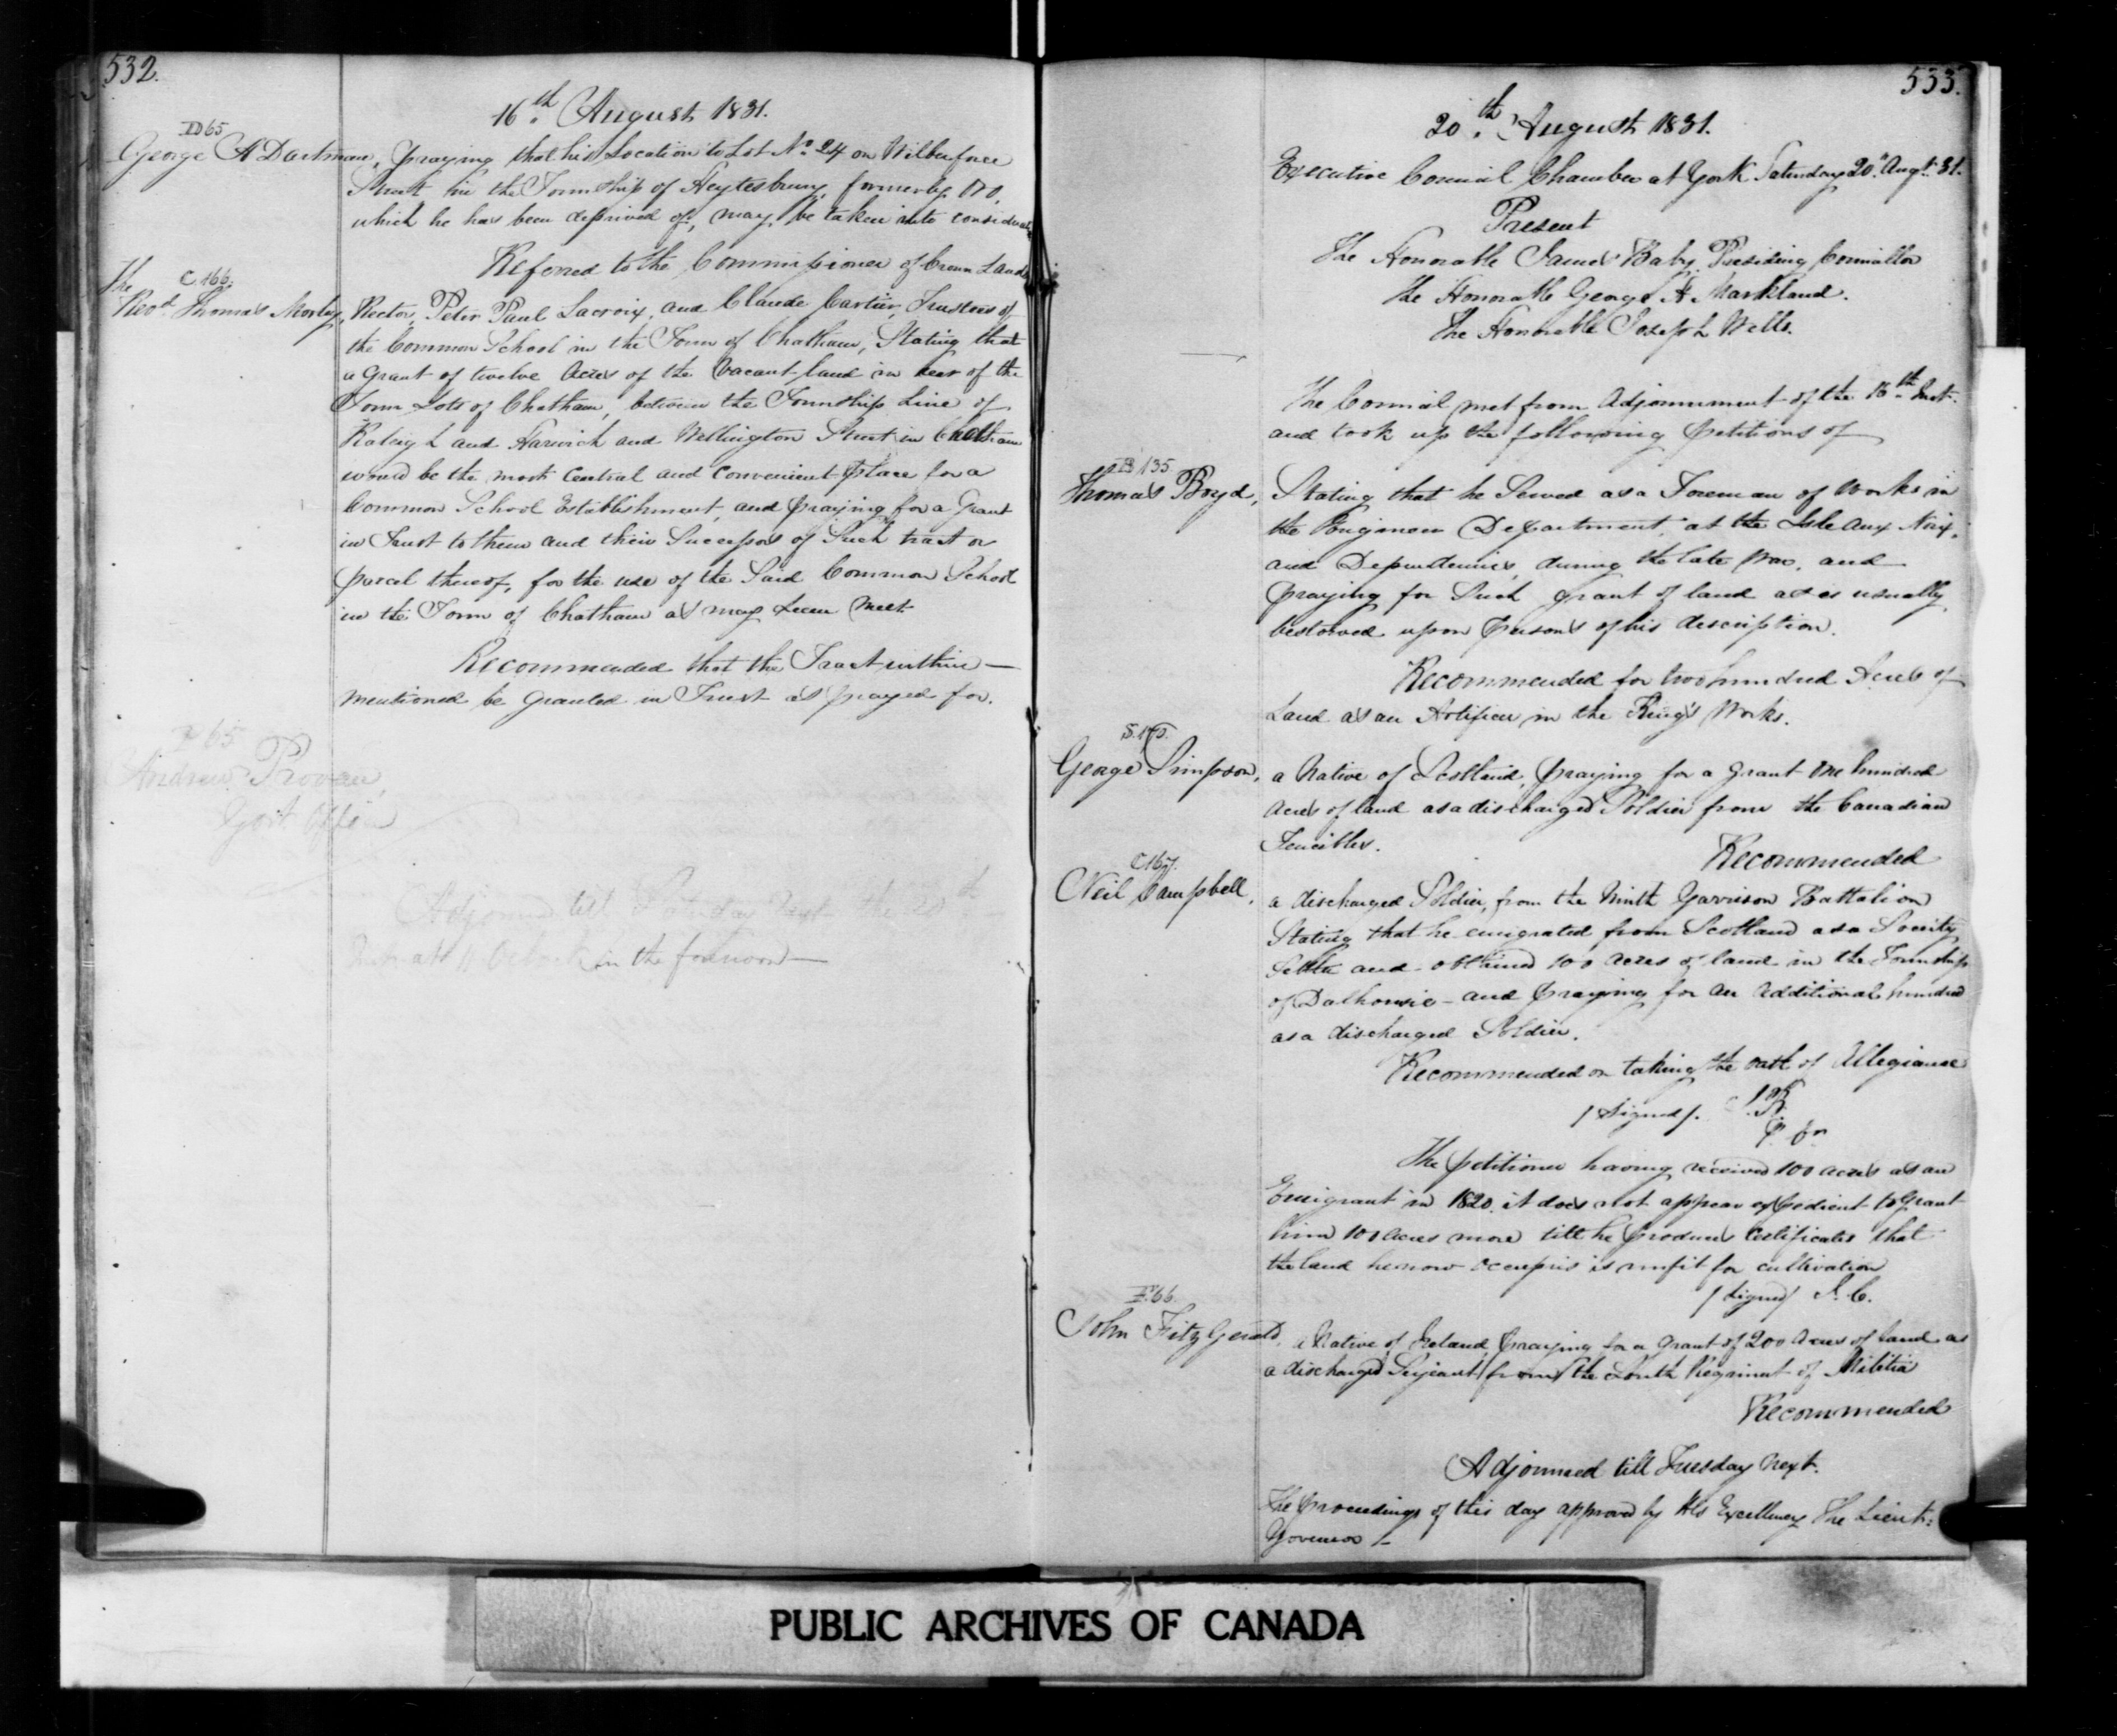 532.
16th August 1831.
D 65
George A Dartman, praying that his Location to Lot No 24 on Wilberforce
Street in the Township of Heytesbury, formerly
which he has been deprived of, may be taken into
Referred to the Commissioner of Crown Lands
C 166.
The
Revd Thomas Morley, Rector, Peter Paul Lacroix, and Claude Cartier, Trustees of
the Common School in the Town of Chatham, Stating that
a Grant of twelve Acres of the Vacant land in rear of the
Town Lots of Chatham, between the Township Line of
Raleigh and Harwich and Wellington Street in Chatham
would be the most Central and Convenient place for a
Common School Establishment, and praying for a Grant
in Trust to them and their Successors of Such tract or
parcel thereof, for the use of the Said Common School
in the Town of Chatham as may Seem Meet
Recommended that the Tract within—
mentioned be Granted in Trust as prayed for.
P 65
Andrew Provan,
Govt Office
Adjourned till Saturday Next the 20th
Inst at 11 OClock in the forenoon—
533.
20th August 1831.
Executive Council Chamber at York Saturday 20th Augt 31.
Present
The Honorable James Baby Presiding Councillor
The Honorable George H Markland.
The Honorable Joseph Wells.
The Council met from Adjournment of the 16th Inst.
and took up the following petitions of
B 135.
Thomas Boyd, Stating that he Served as a Foreman of Works in
the Engineer Department, at the Isle Aux Noix,
and Dependencies, during the late War, and
praying for Such grant of land as is usually
bestowed upon persons of his description.
Recommended for two hundred Acres of
Land as an Artificer in the King's Works.
George Simpson, a Native of Scotland, praying for a grant One hundred
Acres of land as a discharged Soldier from the Canadian
Fencibles.
Recommended
C 167.
Neil Campbell, a discharged Soldier, from the Ninth Garrison Battalion
Stating that he emigrated from Scotland as a Society
Settler and obtained 100 acres of land in the Township
of Dalhousie – and praying for an additional hundred
as a discharged Soldier.
Recommended on taking the oath of Allegiance
/Signed/. J.B.
P. Cr
The petitioner having received 100 acres as an
Emigrant in 1820. it does not appear expedient to grant
him 100 acres more till he produces Certificates that
the land he now occupies is unfit for cultivation
/Signed/ J. C.
F 66.
John FitzGerald, a Native of Ireland, praying for a grant of 200 Acres of land as
a discharged Serjeant from the South Regiment of Militia
Recommended
Adjourned till Tuesday Next.
The proceedings of this day approved by His Excellency The Lieut:
Governor –
PUBLIC ARCHIVES OF CANADA